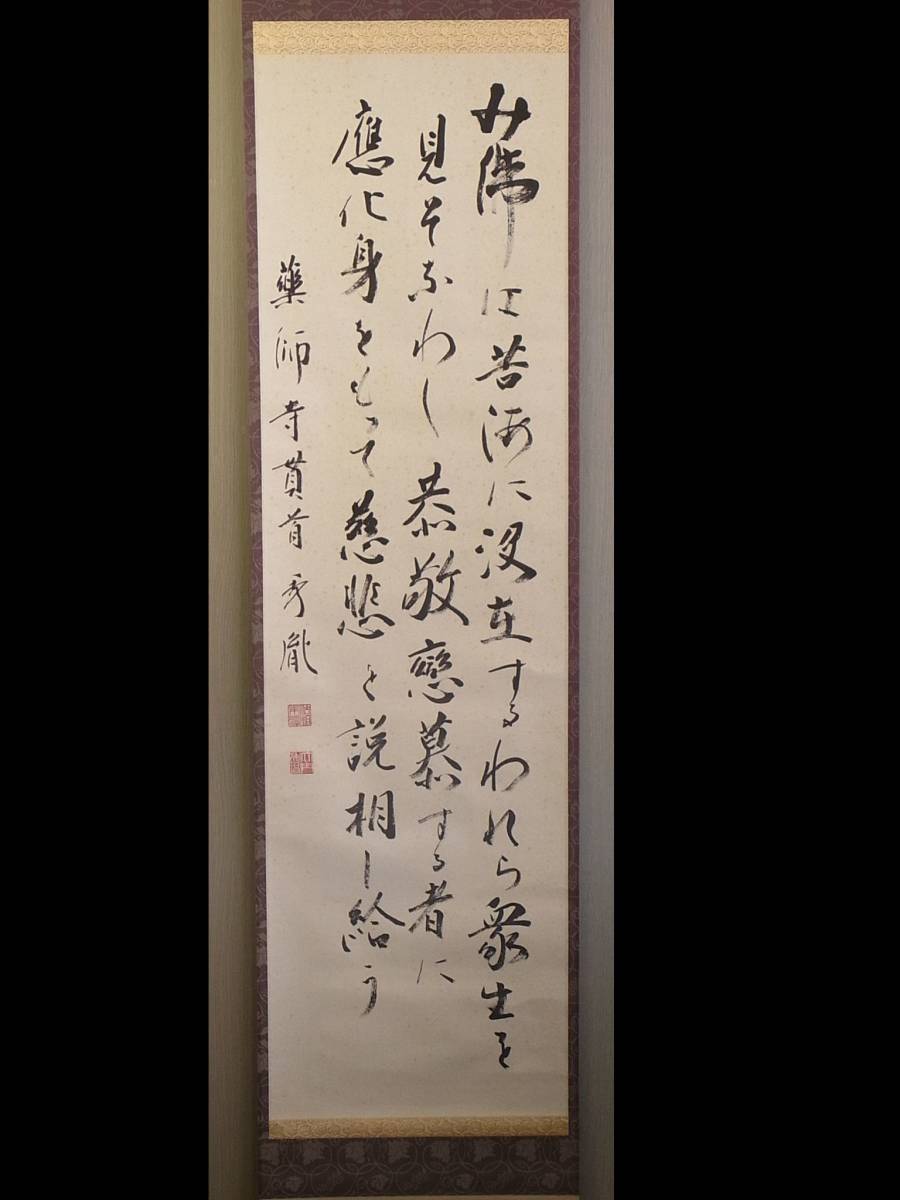 み佛は苦海に没在するわれら衆生を
見そなわし恭敬戀慕する者に
應化身をもって慈悲を説相し給う
藥師寺貫首 秀胤